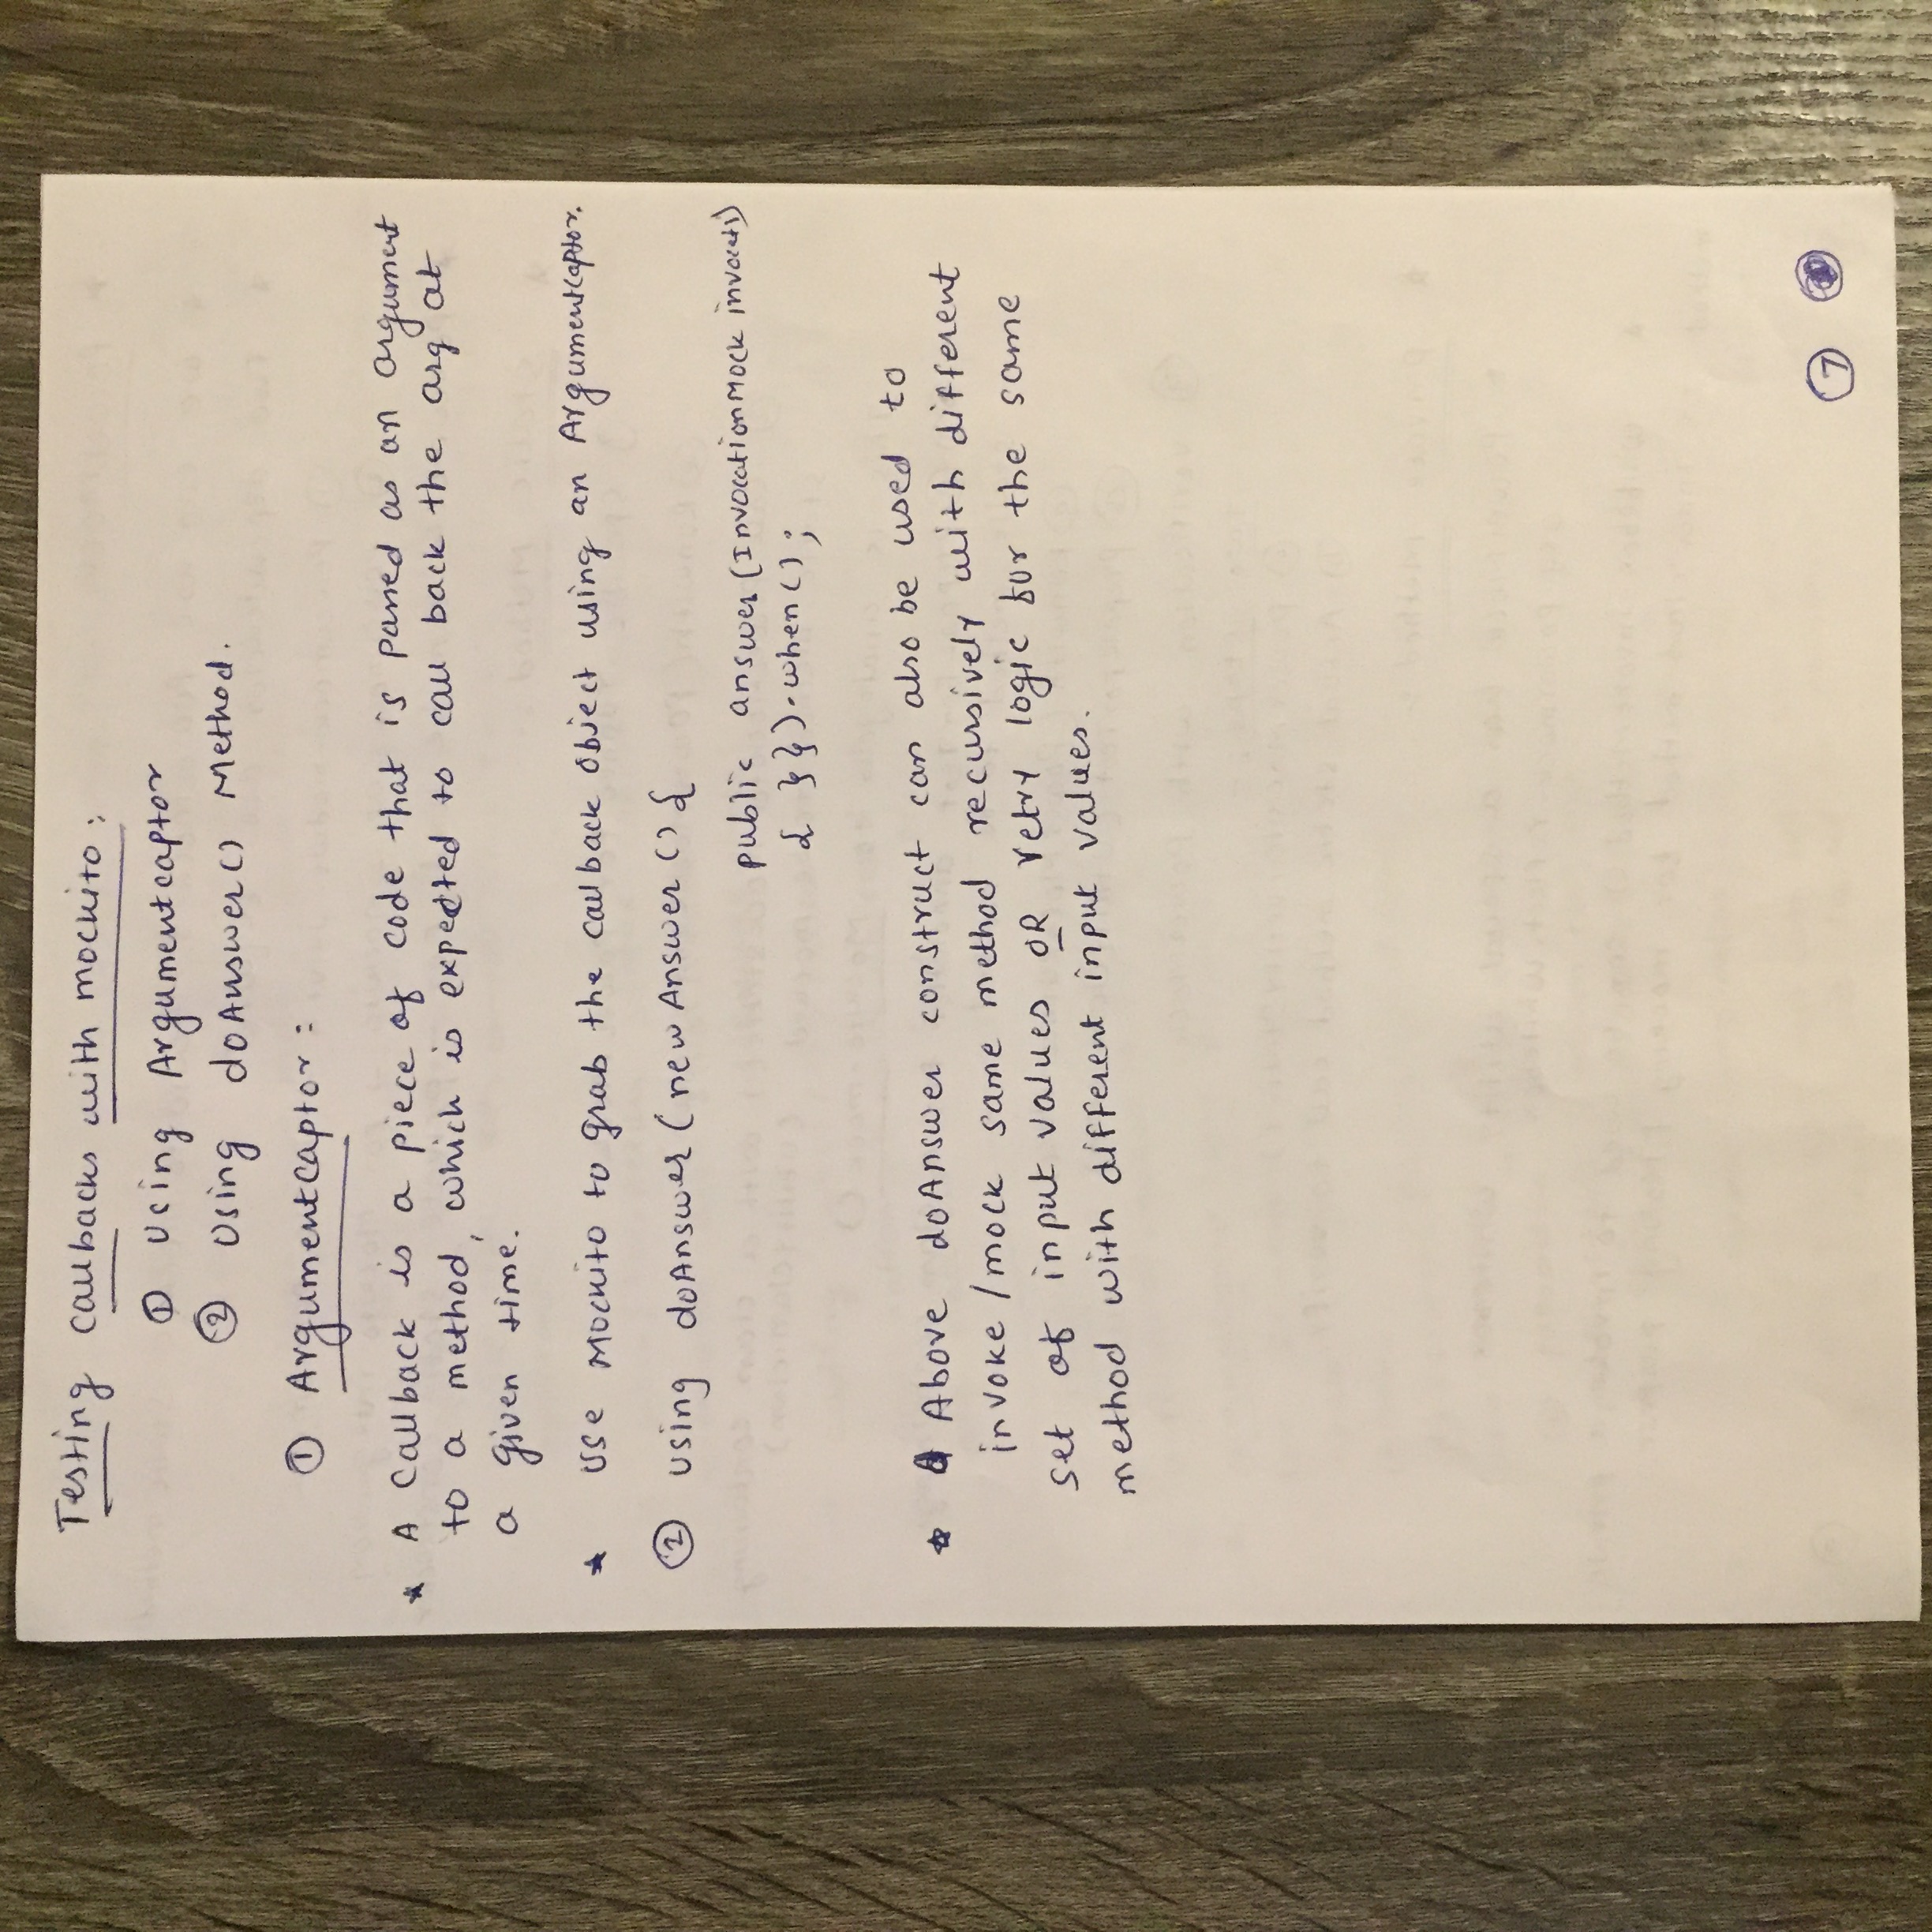 Testing callbacks with mockito:
① Using Argumentcaptor
② Using doAnswer() Method.
① Argumentcaptor:
* A Callback is a piece of code that is passed as an argument
to a method, which is expected to call back the arg at
a given time.
* Use Mockito to grab the callback object using an ArgumentCaptor.
② using doAnswer(new Answer() {
public answer(InvocationMock
{ }}).when();
* Above doAnswer construct can also be used to
invoke/mock same method recursively with different
set of input values OR retry logic for the same
method with different input values.
7